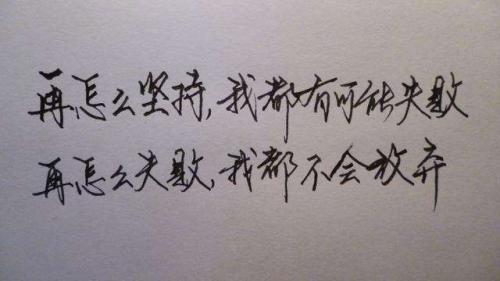 再怎么坚持,我都有可能失败
再怎么失败,我都不会放弃